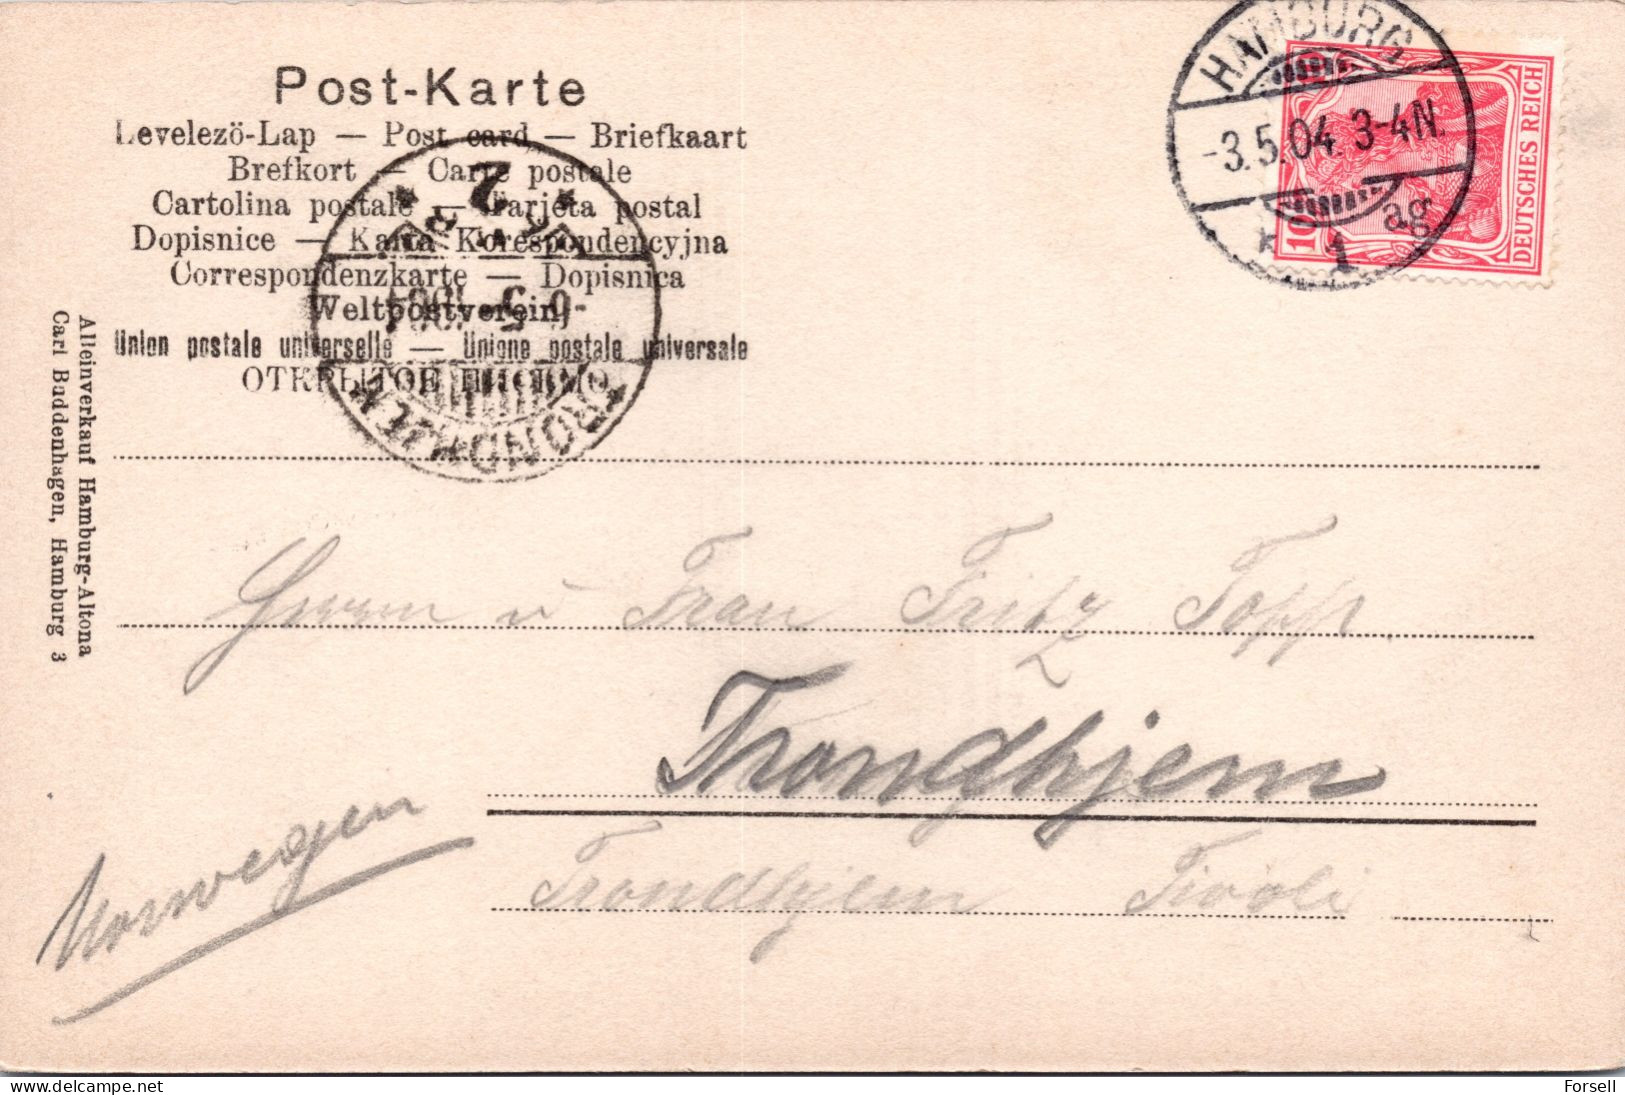 Post-Karte
Levelezö-Lap — Post card — Briefkaart
Brefkort — Carte postale
Cartolina postale — Tarjeta postal
Dopisnice — Karta Korespondencyjna
Correspondenzkarte — Dopisnica
Weltpostverein
Union postale universelle — Unione postale universale
ОТКРЫТОЕ ПИСЬМО
HAMBURG
-3.5.04. 3-4N.
* 1 ag
DEUTSCHES REICH
10
TRONDHJEM
2
Alleinverkauf Hamburg-Altona
Carl Buddenhagen, Hamburg 3
Herrn u Frau Fritz Topp
Trondhjem
Trondhjem Tivoli
Norwegen
Forsell
delcampe.net